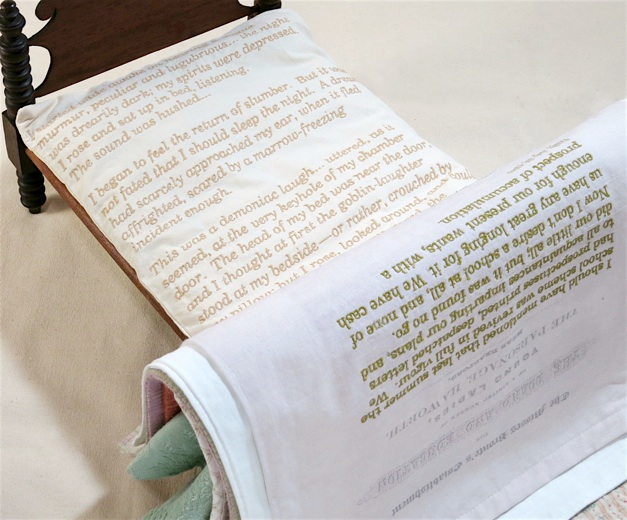 murmur, peculiar and lugubrious... the night
was drearily dark; my spirits were depressed.
I rose and sat up in bed, listening.
The sound was hushed...
I began to feel the return of slumber. But it
not fated that I should sleep the night. A
had scarcely approached my ear, when it fled
affrighted, scared by a marrow-freezing
incident enough.
This was a demoniac laugh... uttered, as it
seemed, at the very keyhole of my chamber
door. The head of my bed was near the door,
and I thought at first the goblin-laughter
stood at my bedside—or rather, crouched by
pillow: but I rose, looked around,
The Misses Bronte's Establishment
FOR
THE BOARD AND EDUCATION
YOUNG LADIES,
THE PARSONAGE, HAWORTH,
NEAR BRADFORD.
I should have mentioned that last summer the
school scheme was revived in full vigour. We
had prospectuses printed, despatched letters
to acquaintances imparting our plans, and
did our little all; but it was found no go.
Now I don't desire a school at all, and none of
us have any great longing for it. We have cash
enough for our present wants, with a
prospect of accumulation.